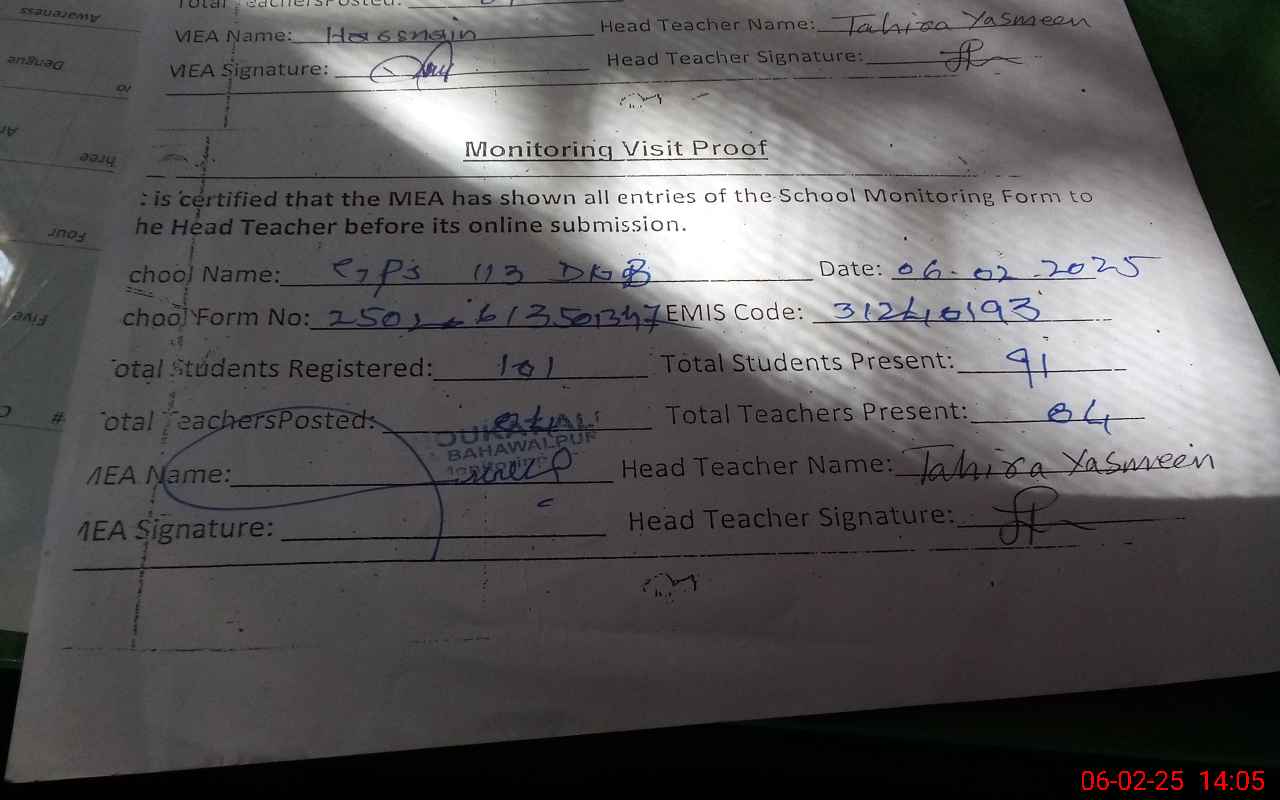 MEA Name: Hassnain Head Teacher Name: Tahira Yasmeen
MEA Signature: Head Teacher Signature:
Monitoring Visit Proof
is certified that the MEA has shown all entries of the School Monitoring Form to
he Head Teacher before its online submission.
chool Name: GPS 113 DNB Date: 06-02-2025
chool Form No: EMIS Code: 31240193
otal Students Registered: 101 Total Students Present: 91
otal TeachersPosted: 04 Total Teachers Present: 04
BAHAWALPUR
MEA Name: Head Teacher Name: Tahira Yasmeen
MEA Signature: Head Teacher Signature:
Awareness
Dengue
hree
Four
Five
#
06-02-25 14:05